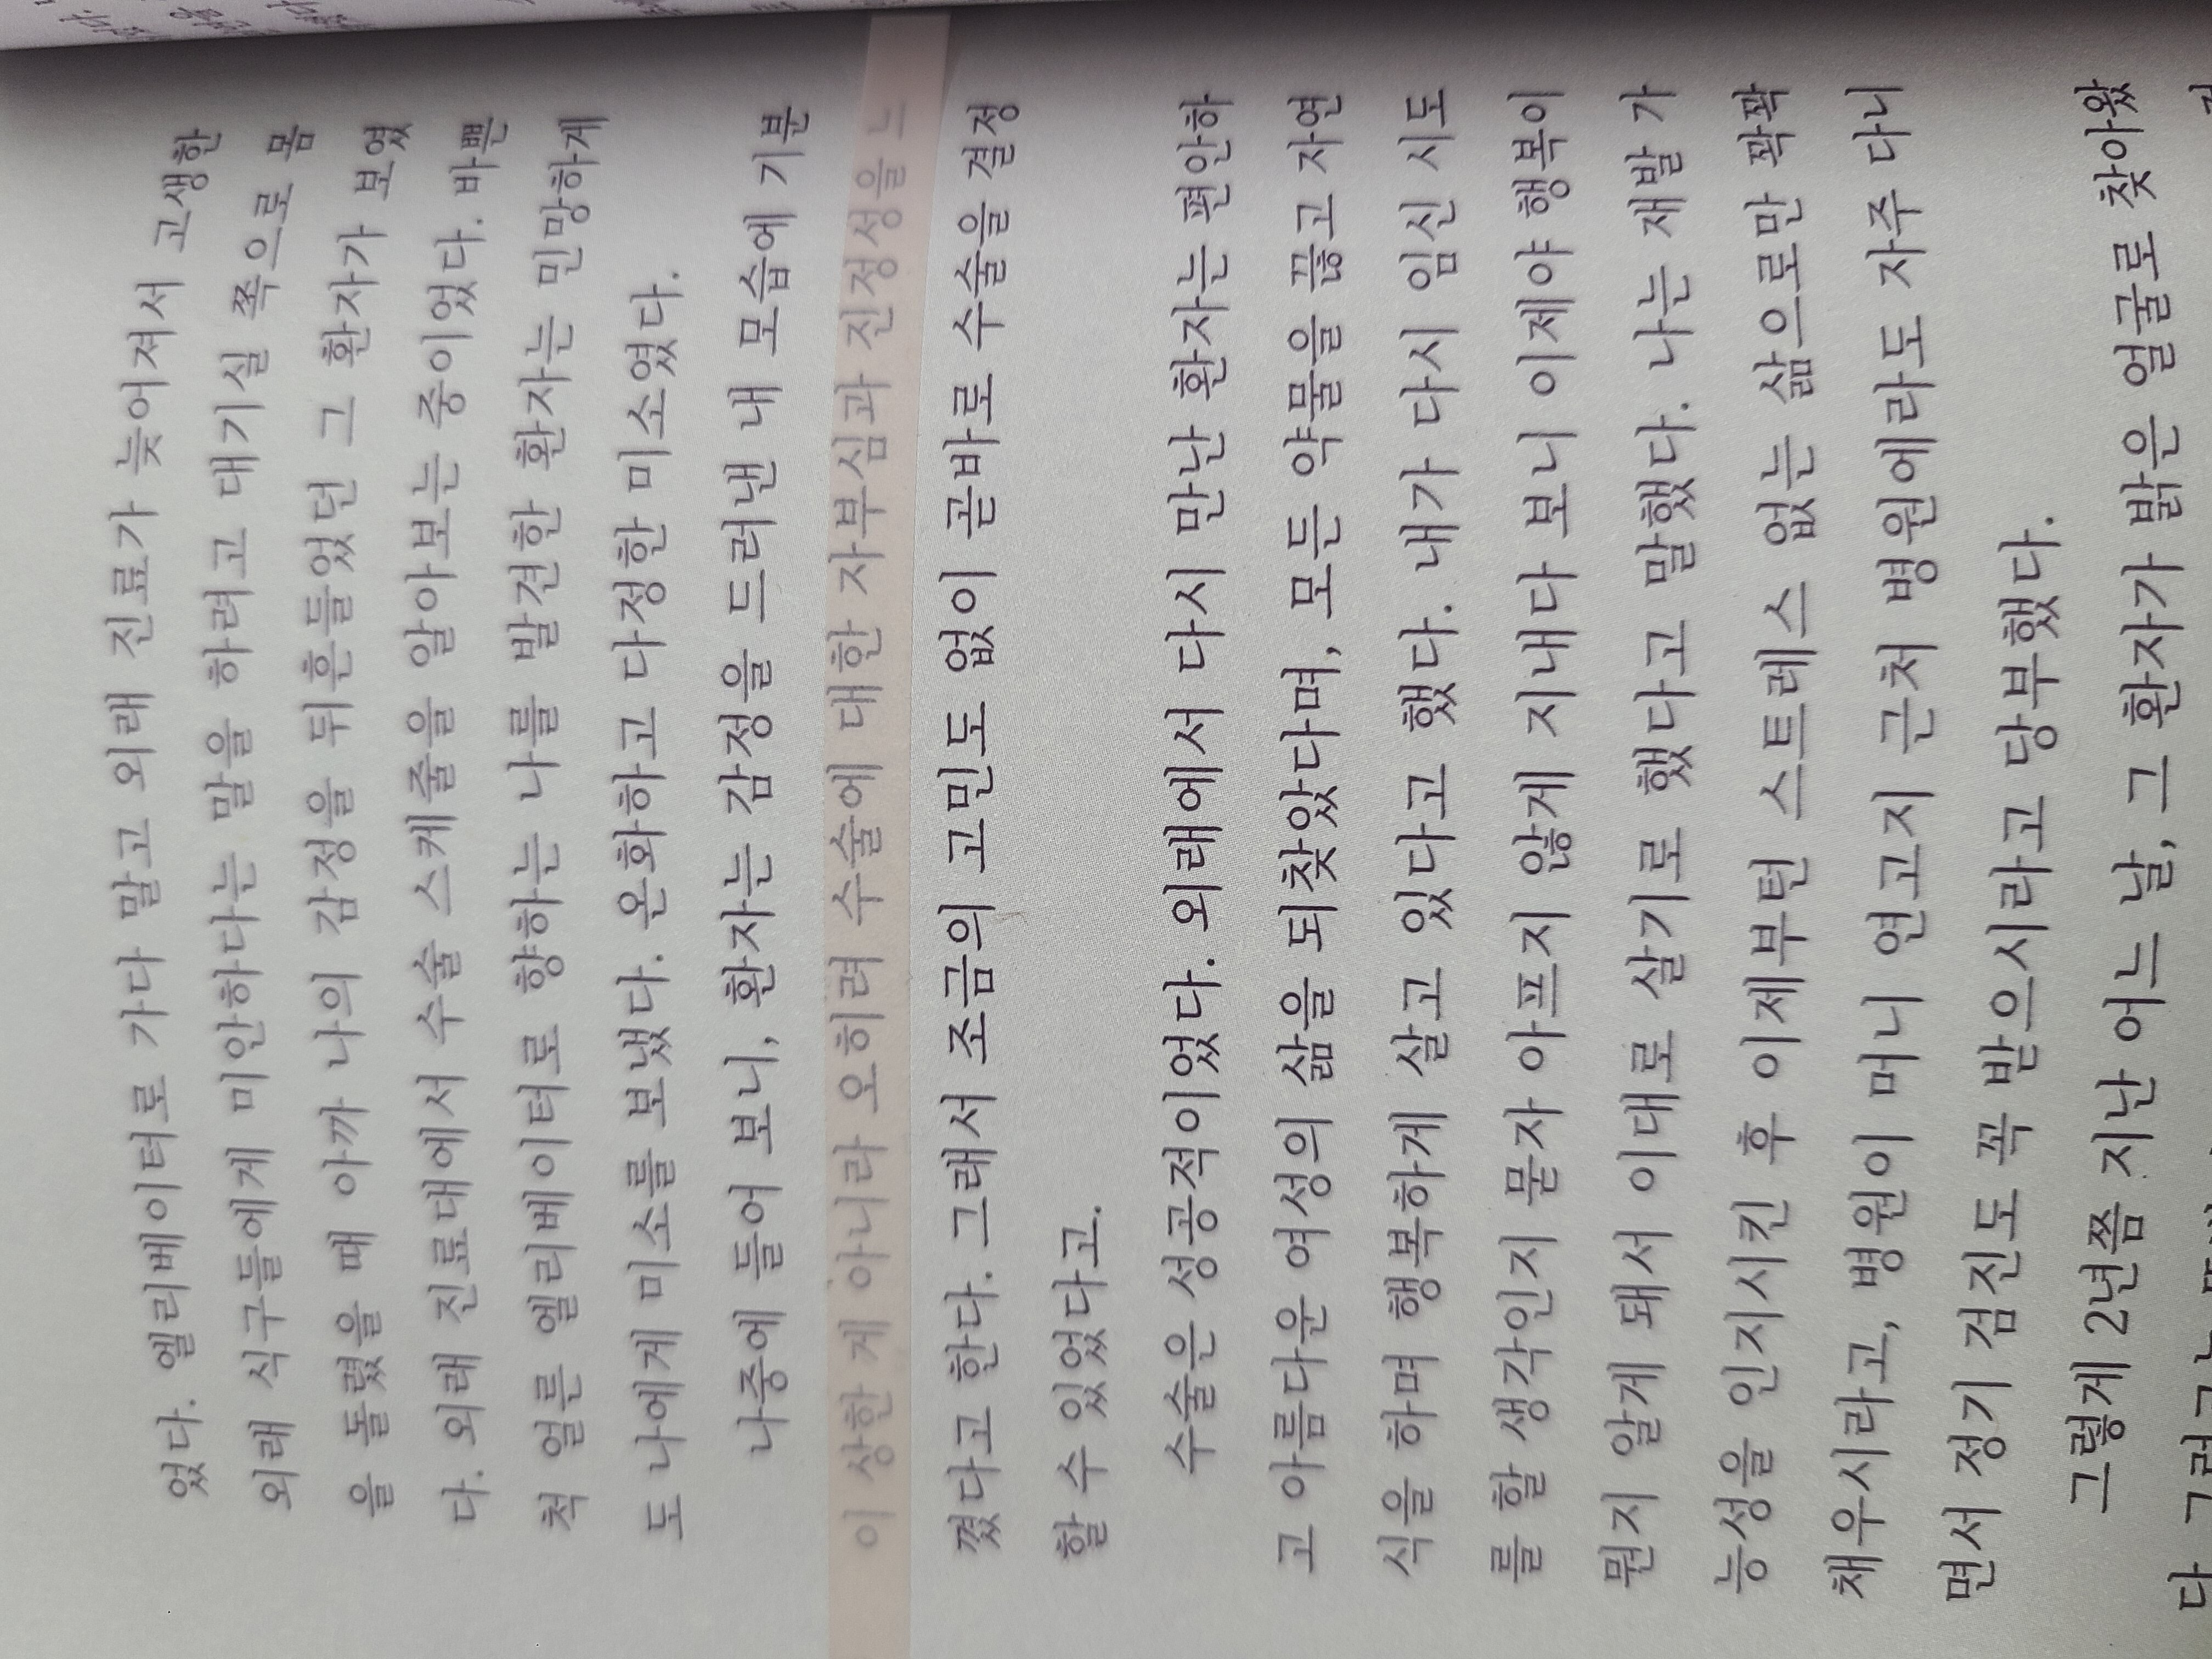 었다. 엘리베이터로 가다 말고 외래 진료가 늦어져서 고생한
외래 식구들에게 미안하다는 말을 하려고 대기실 쪽으로 몸
을 돌렸을 때 아까 나의 감정을 뒤흔들었던 그 환자가 보였
다. 외래 진료대에서 수술 스케줄을 알아보는 중이었다. 바쁜
척 얼른 엘리베이터로 향하는 나를 발견한 환자는 민망하게
도 나에게 미소를 보냈다. 온화하고 다정한 미소였다.
나중에 들어 보니, 환자는 감정을 드러낸 내 모습에 기분
이 상한 게 아니라 오히려 수술에 대한 자부심과 진정성을 느
꼈다고 한다. 그래서 조금의 고민도 없이 곧바로 수술을 결정
할 수 있었다고.
수술은 성공적이었다. 외래에서 다시 만난 환자는 편안하
고 아름다운 여성의 삶을 되찾았다며, 모든 약물을 끊고 자연
식을 하며 행복하게 살고 있다고 했다. 내가 다시 임신 시도
를 할 생각인지 묻자 아프지 않게 지내다 보니 이제야 행복이
뭔지 알게 돼서 이대로 살기로 했다고 말했다. 나는 재발 가
능성을 인지시킨 후 이제부턴 스트레스 없는 삶으로만 꽉꽉
채우시라고, 병원이 머니 연고지 근처 병원에라도 자주 다니
면서 정기 검진도 꼭 받으시라고 당부했다.
그렇게 2년쯤 지난 어느 날, 그 환자가 밝은 얼굴로 찾아왔
다